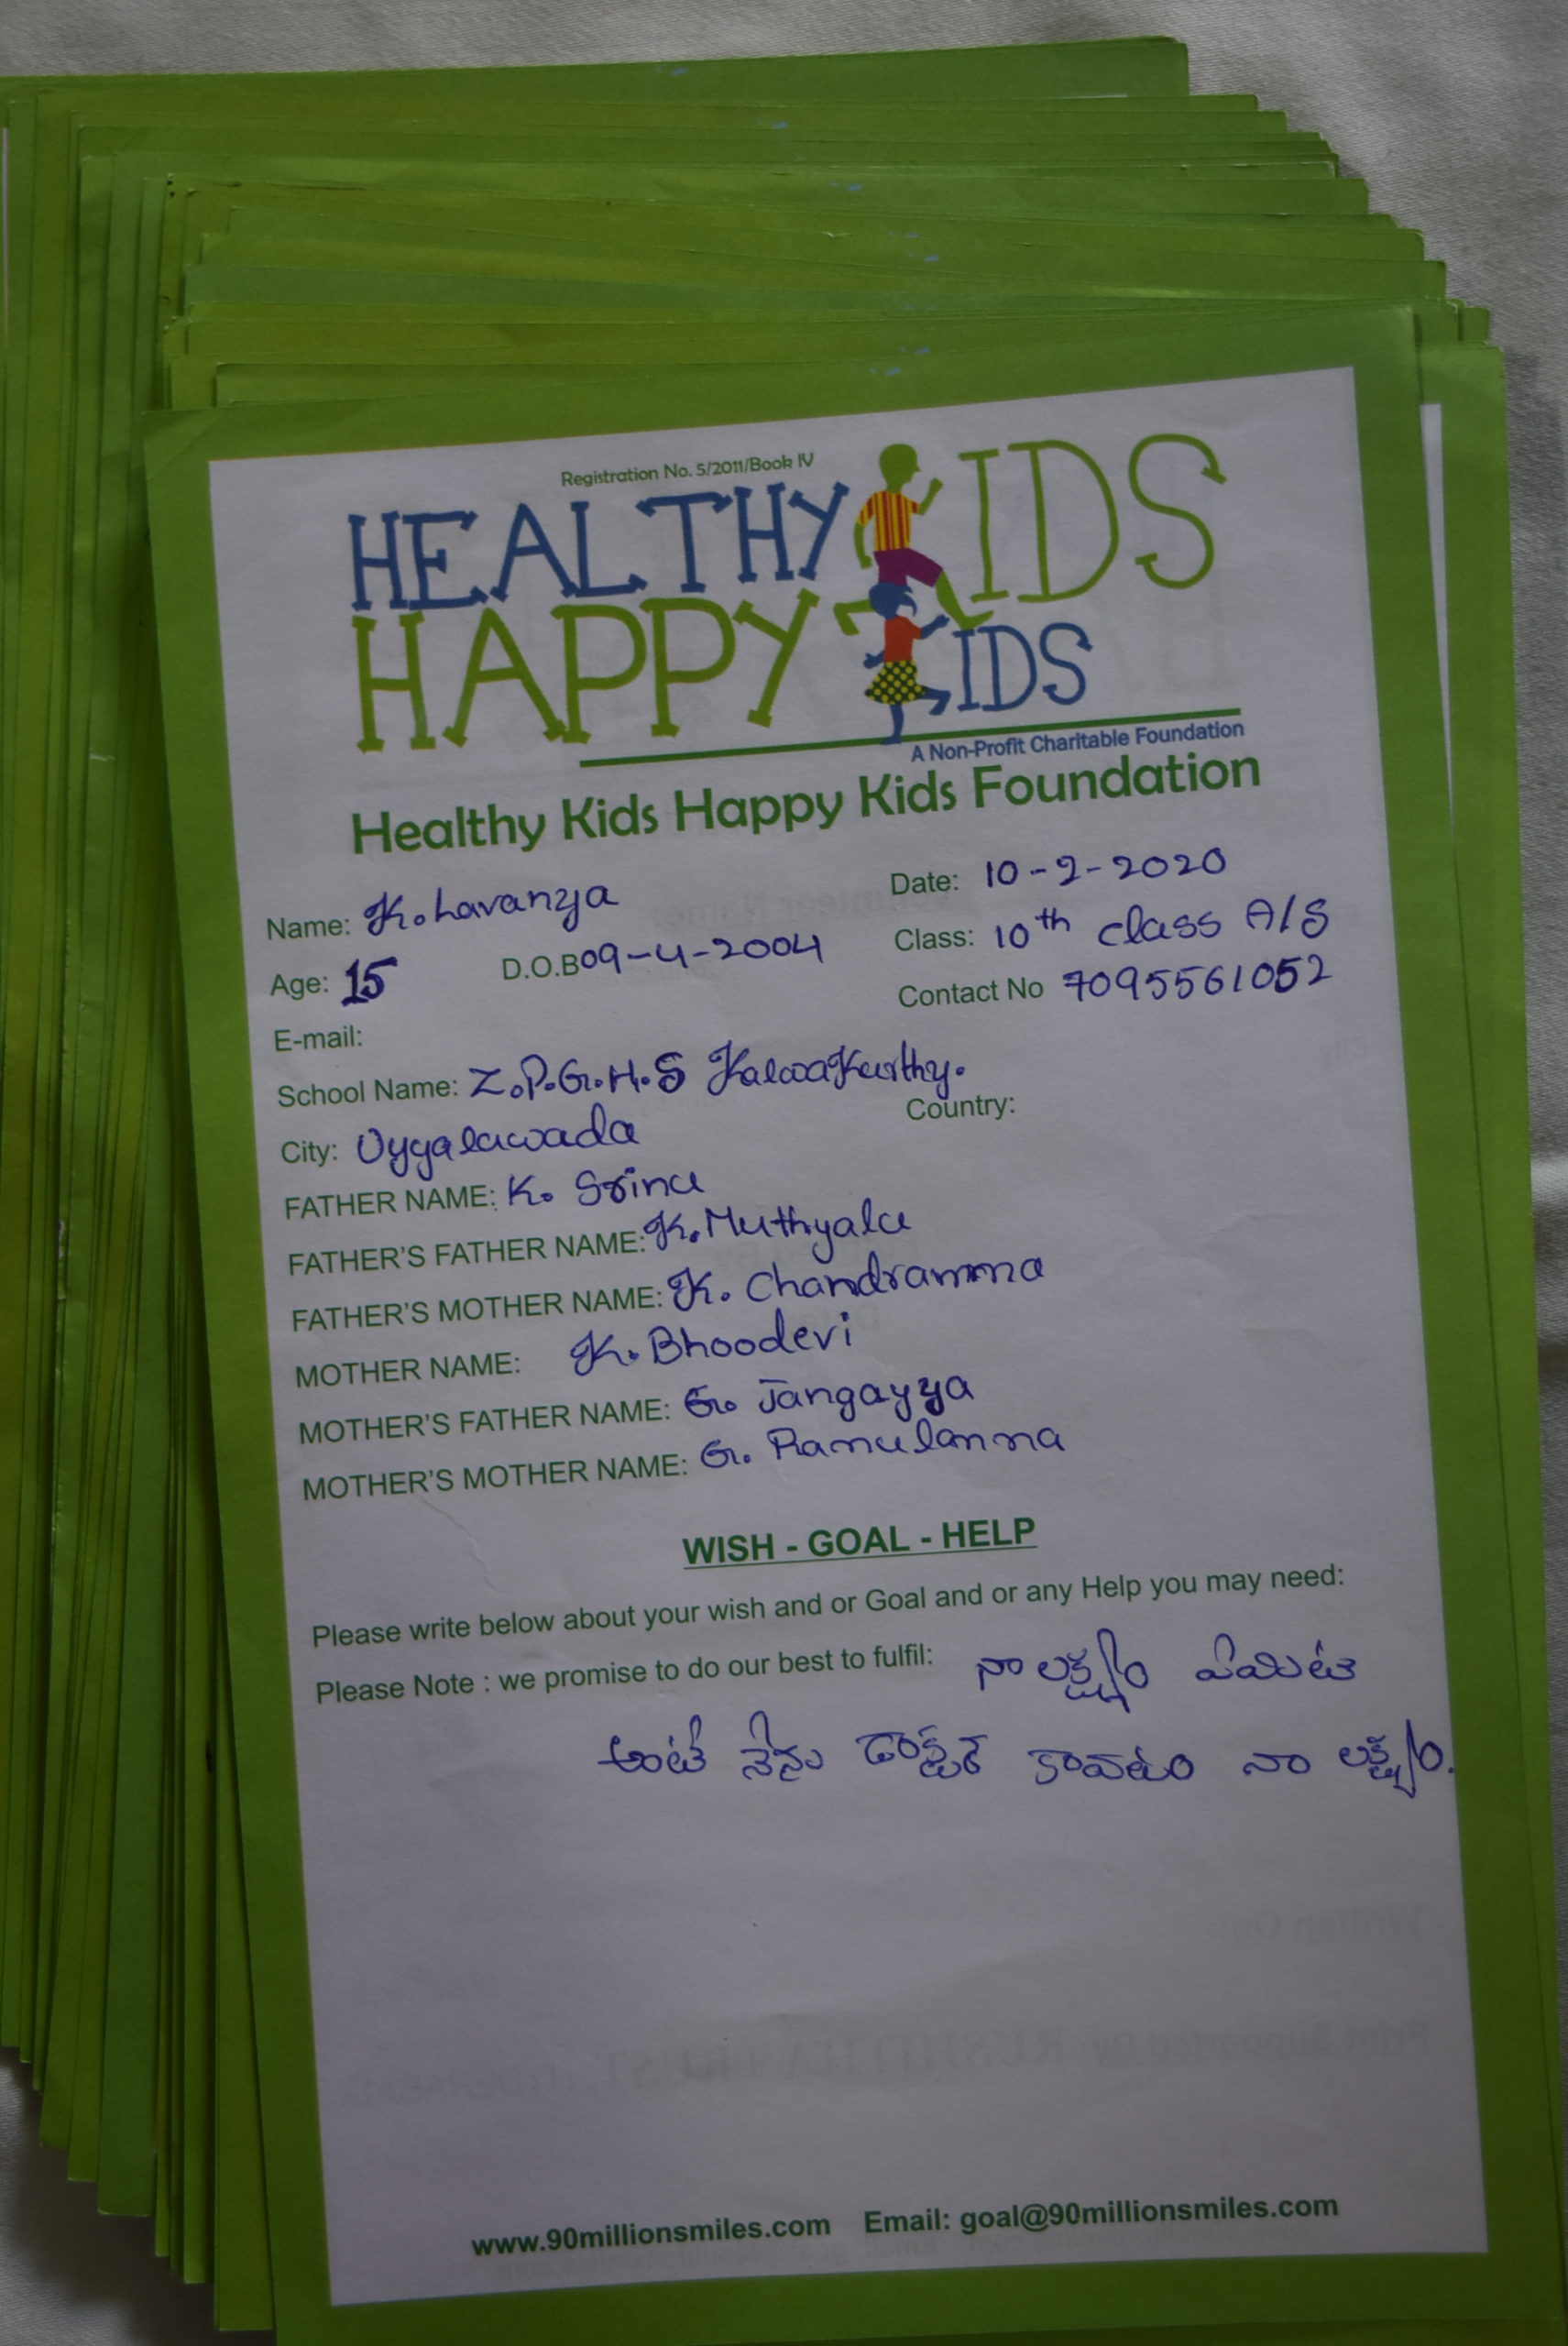 Registration No. 5/2011/Book IV
HEALTHY KIDS
HAPPY KIDS
A Non-Profit Charitable Foundation
Healthy Kids Happy Kids Foundation
Name: K. Lavanya Date: 10-2-2020
Age: 15 D.O.B 09-4-2004 Class: 10th class A/S
E-mail: Contact No 7095561052
School Name: Z.P.G.H.S Kalwakurthy.
City: Uyyalawada Country:
FATHER NAME: K. Srinu
FATHER'S FATHER NAME: K. Muthyalu
FATHER'S MOTHER NAME: K. Chandramma
MOTHER NAME: K. Bhoodevi
MOTHER'S FATHER NAME: G. Jangayya
MOTHER'S MOTHER NAME: G. Ramulamma
WISH - GOAL - HELP
Please write below about your wish and or Goal and or any Help you may need:
Please Note : we promise to do our best to fulfil: నా లక్ష్యం ఏమిటి
అంటే నేను డాక్టర్ కావటం నా లక్ష్యం.
www.90millionsmiles.com Email: goal@90millionsmiles.com